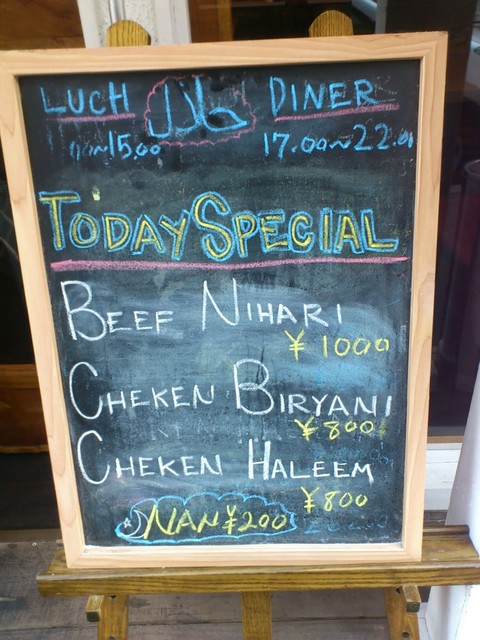 LUCH حلال DINER
15.00 17.00~22.00
TODAY SPECIAL
BEEF NIHARI
¥1000
CHEKEN BIRYANI
¥800
CHEKEN HALEEM
¥800
NAN ¥200